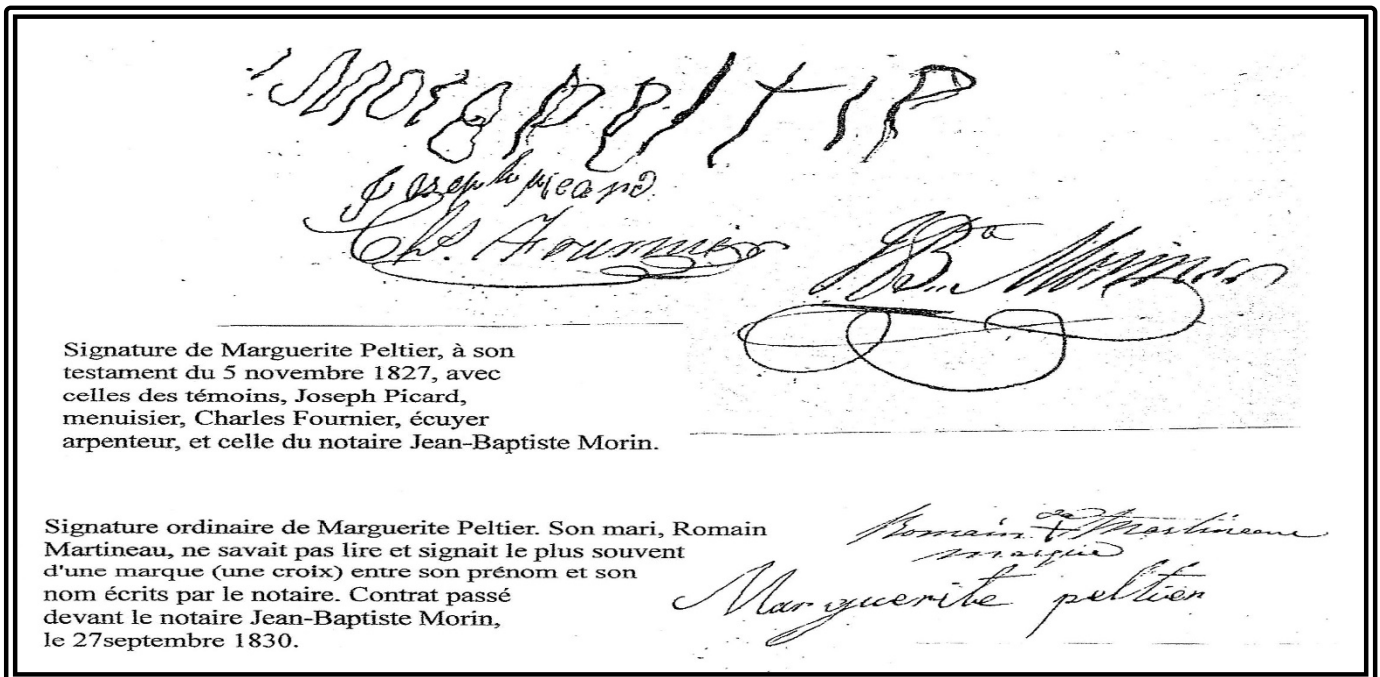 Joseph picard
Chs. Fournier
Morin
Signature de Marguerite Peltier, à son
testament du 5 novembre 1827, avec
celles des témoins, Joseph Picard,
menuisier, Charles Fournier, écuyer
arpenteur, et celle du notaire Jean-Baptiste Morin.
Signature ordinaire de Marguerite Peltier. Son mari, Romain
Martineau, ne savait pas lire et signait le plus souvent
d'une marque (une croix) entre son prénom et son
nom écrits par le notaire. Contrat passé
devant le notaire Jean-Baptiste Morin,
le 27septembre 1830.
sa
Romain + Martineau
marque
Marguerite peltier